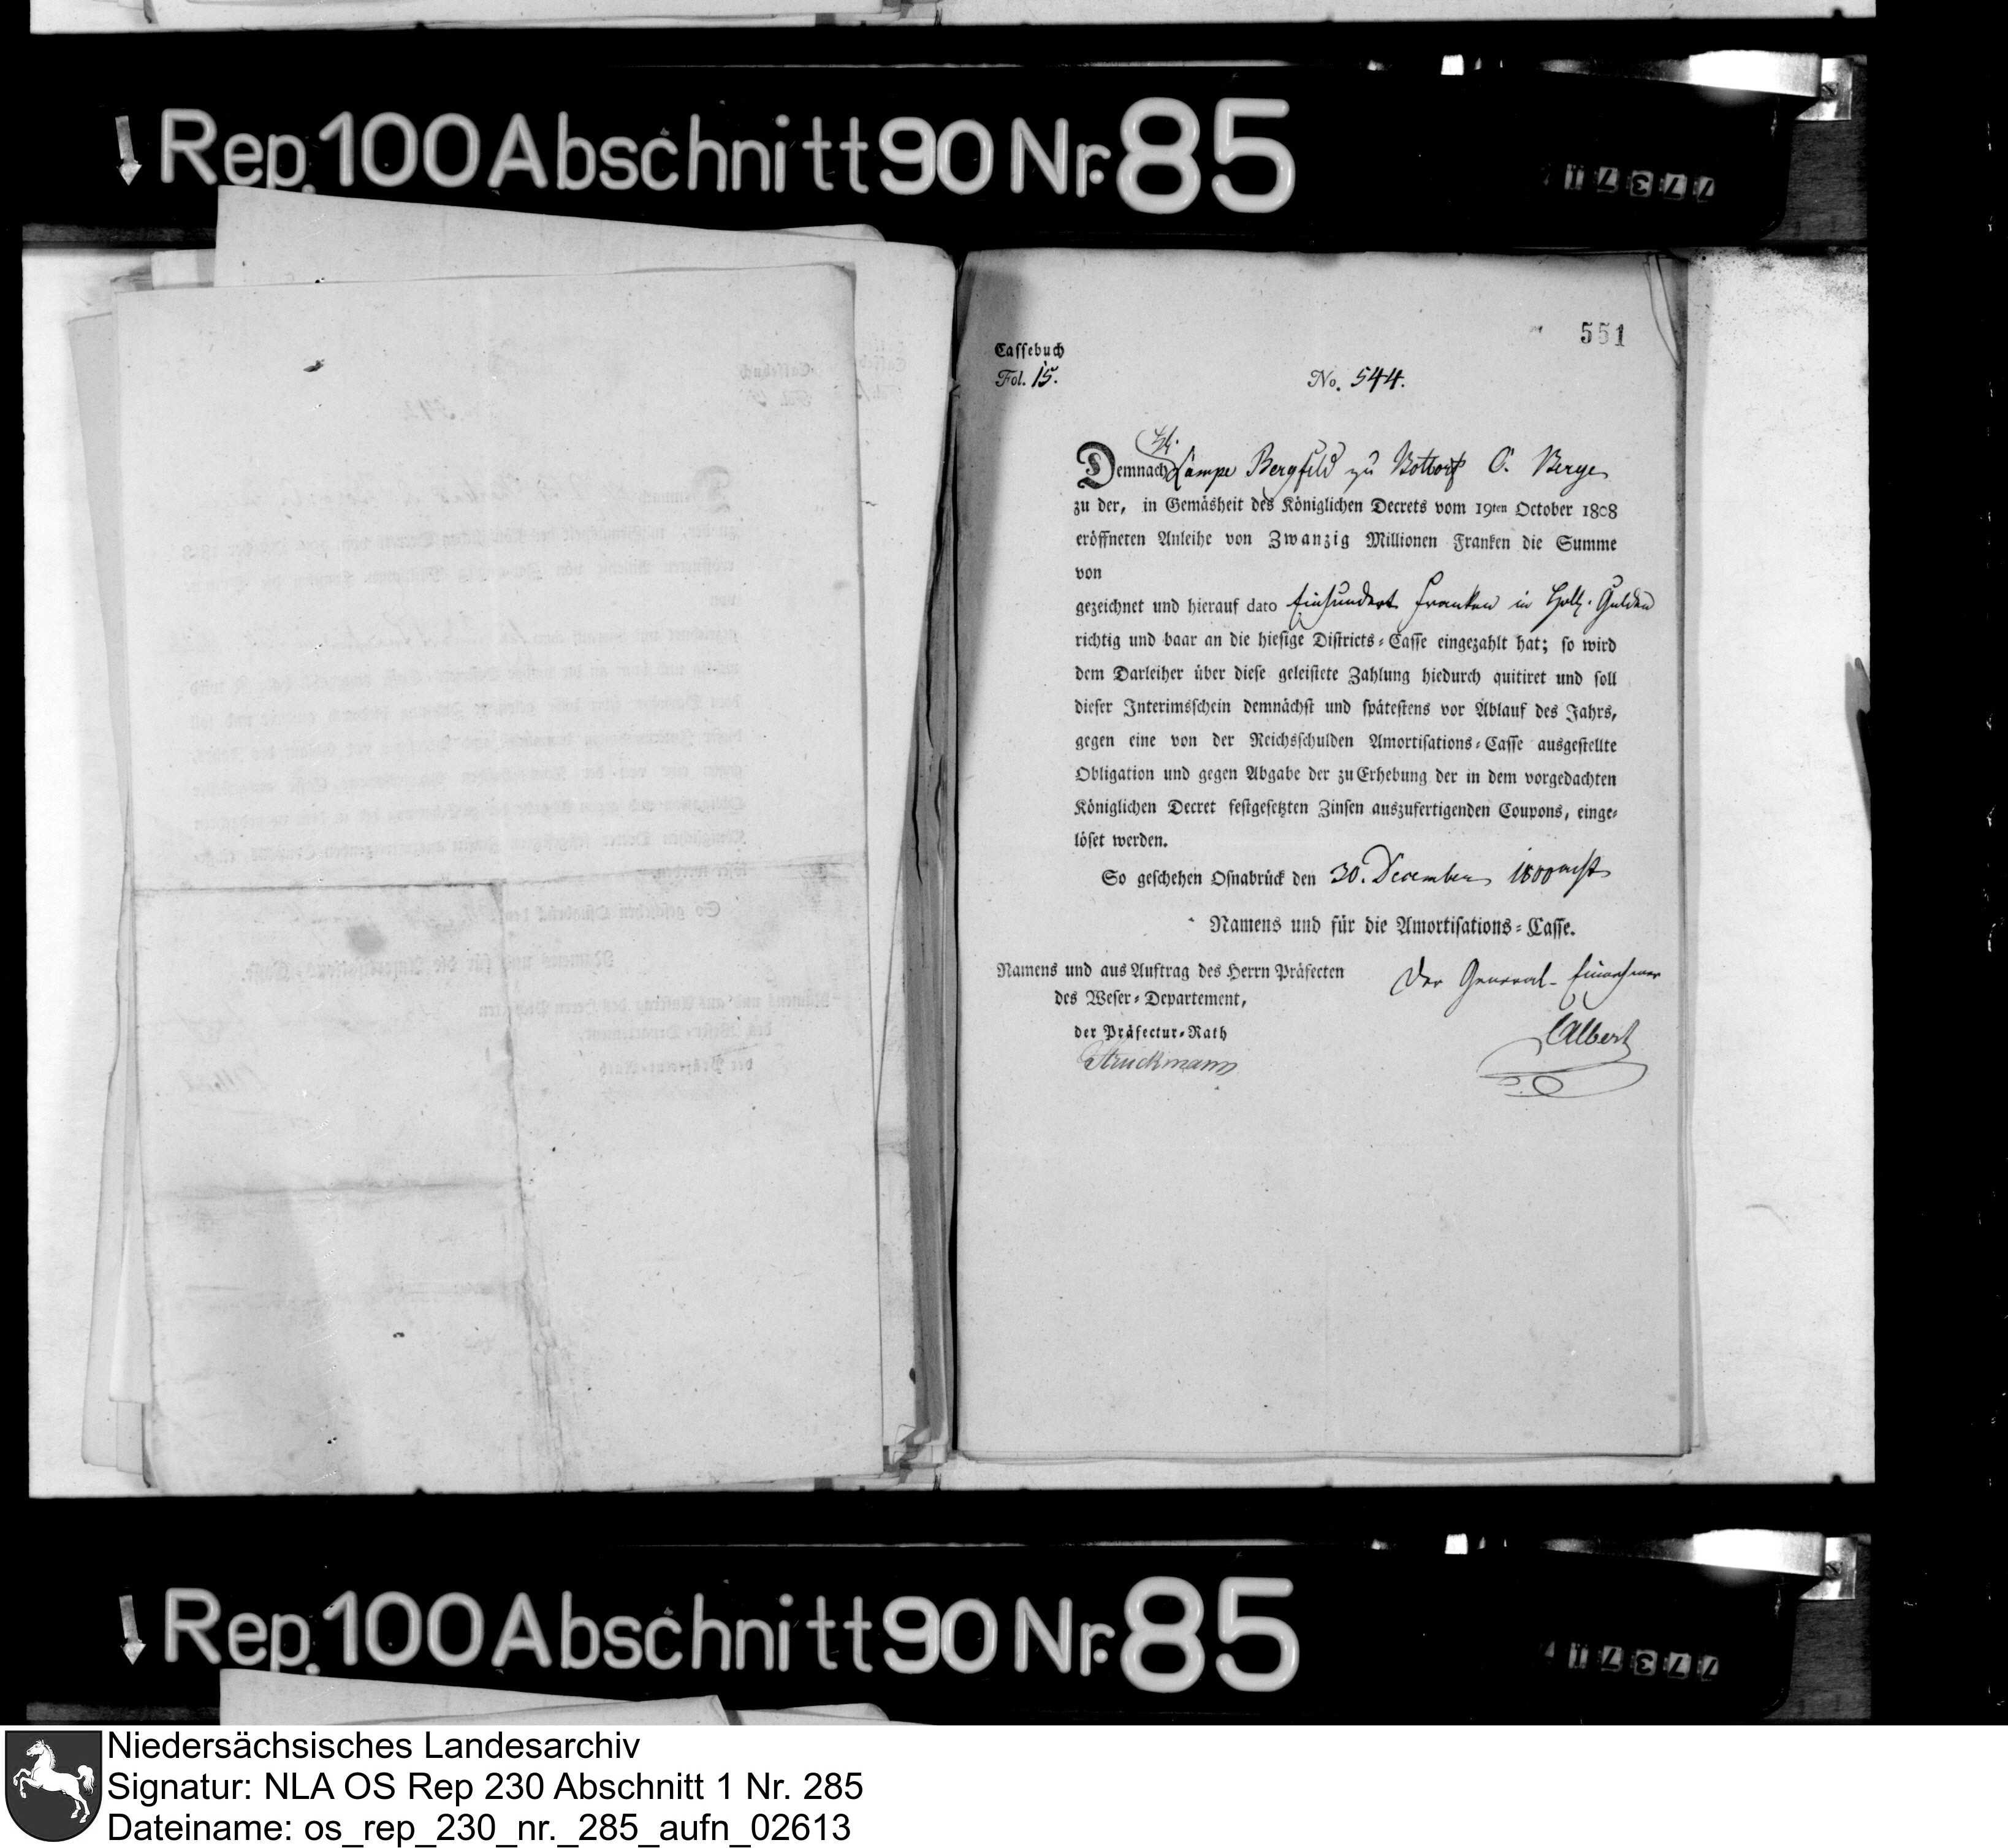 Rep. 100 Abschnitt 90 Nr. 85
551
Cassebuch
Fol. 15.
No. 544.
Demnach Campe Bergfeld zu Bottorf C. Berge
zu der, in Gemäsheit des Königlichen Decrets vom 19ten October 1808
eröffneten Anleihe von Zwanzig Millionen Franken die Summe
von
gezeichnet und hierauf dato Einhundert Franken in Holl. Gulden
richtig und baar an die hiesige Districts-Casse eingezahlt hat; so wird
dem Darleiher über diese geleistete Zahlung hiedurch quitiret und soll
dieser Interimsschein demnächst und spätestens vor Ablauf des Jahrs,
gegen eine von der Reichsschulden Amortisations-Casse ausgestellte
Obligation und gegen Abgabe der zu Erhebung der in dem vorgedachten
Königlichen Decret festgesetzten Zinsen auszufertigenden Coupons, einge-
löset werden.
So geschehen Osnabrück den 30. December 1800 acht
Namens und für die Amortisations-Casse.
Namens und aus Auftrag des Herrn Präfecten
des Weser-Departement,
der Präfectur-Rath
Struckmann
Der General-Einnehmer
CAlbert
Rep. 100 Abschnitt 90 Nr. 85
Niedersächsisches Landesarchiv
Signatur: NLA OS Rep 230 Abschnitt 1 Nr. 285
Dateiname: os_rep_230_nr._285_aufn_02613